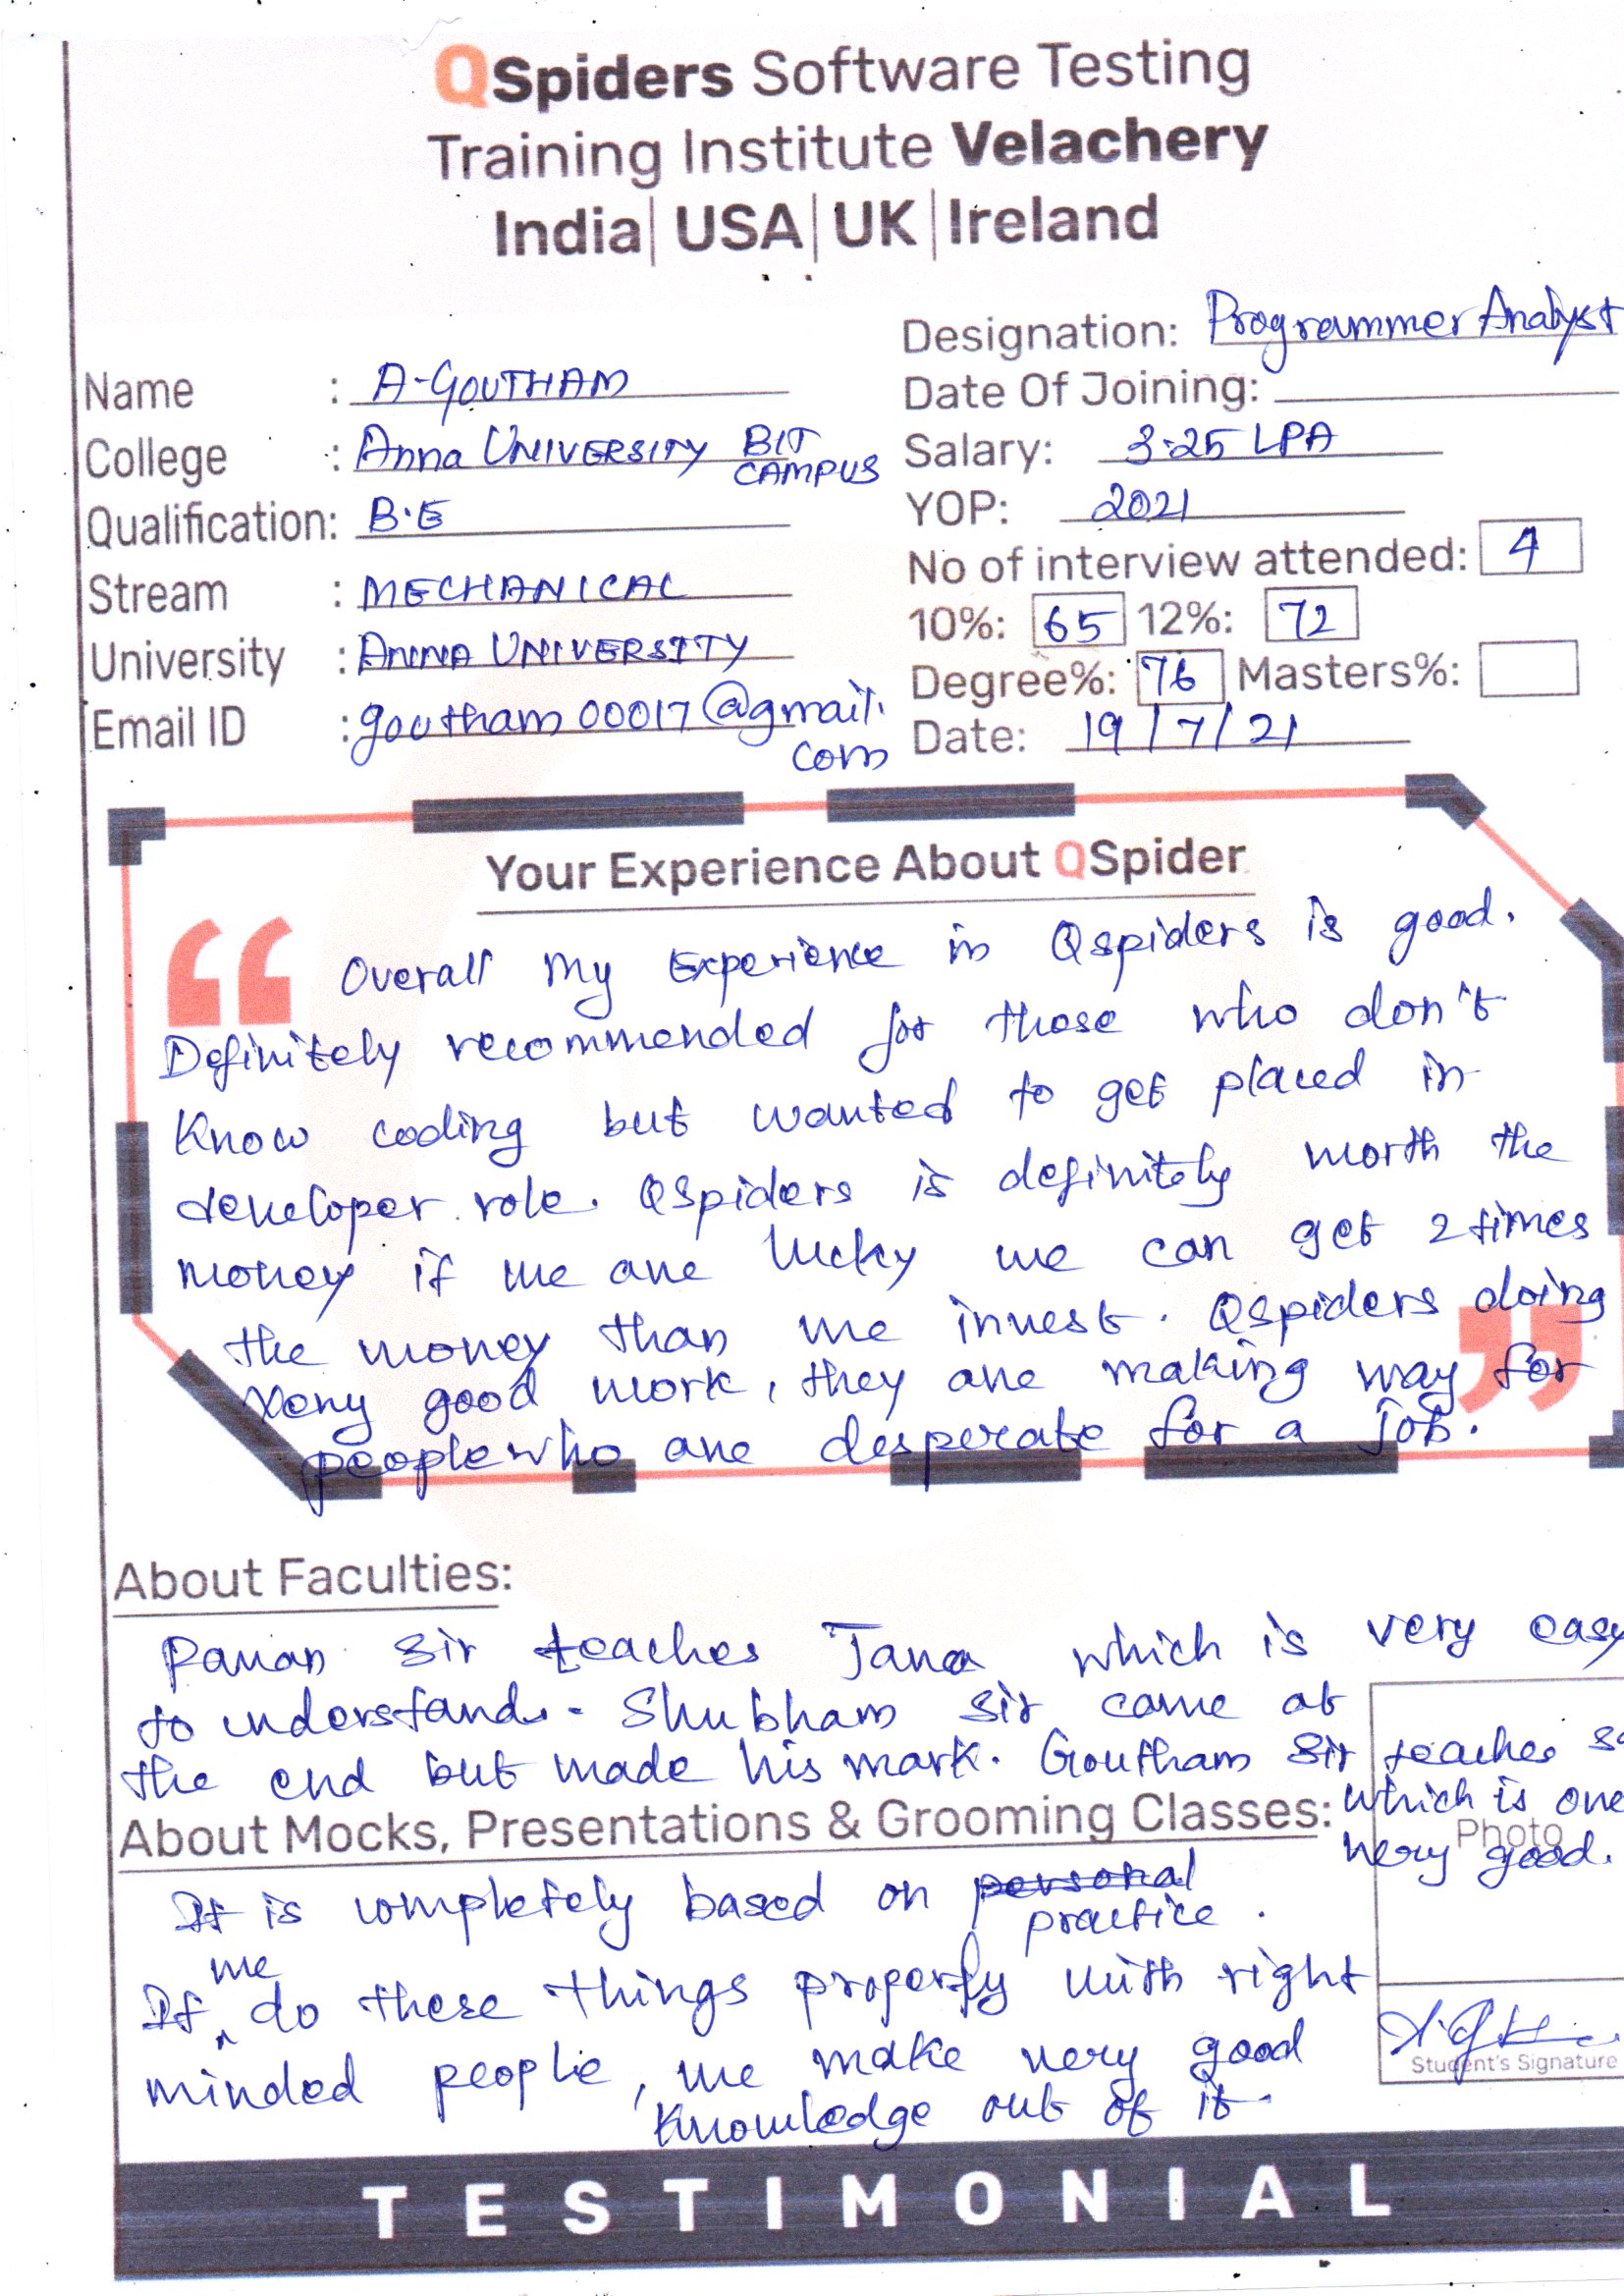 QSpiders Software Testing
Training Institute Velachery
India| USA| UK| Ireland
Designation: Programmer Analyst
Name : A-GOUTHAM
Date Of Joining:
College : Anna UNIVERSITY BIT CAMPUS
Salary: 3.25 LPA
Qualification: B.E
YOP: 2021
No of interview attended: 4
Stream : MECHANICAL
10%: 65 12%: 72
University : ANNA UNIVERSITY
Degree%: 76 Masters%:
Email ID : goutham00017@gmail.com
Date: 19/7/21
Your Experience About QSpider
Overall my Experience in Qspiders is good.
Definitely recommended for those who don't
know coding but wanted to get placed in
developer role. QSpiders is definitely worth the
money if we are lucky we can get 2 times
the money than we invest. Qspiders doing
very good work, they are making way for
people who are desperate for a job.
About Faculties:
Pavan Sir teaches Java which is very easy
to understand. - Shubham Sir came at
the end but made his mark. Goutham Sir teaches
which is one
very good.
About Mocks, Presentations & Grooming Classes:
Photo
It is completely based on personal
practice.
If we do these things properly with right
minded people, we make very good
knowledge out of it.
Student's Signature
TESTIMONIAL